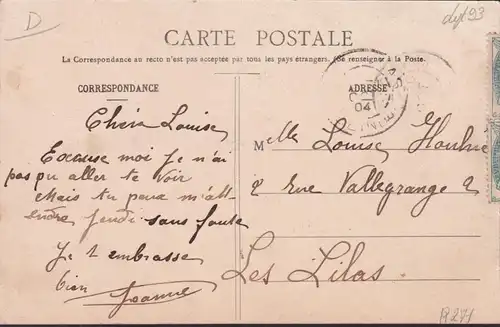 D
dpt 93
CARTE POSTALE
La Correspondance au recto n'est pas acceptée par tous les pays étrangers. (Se renseigner à la Poste.
CORRESPONDANCE
ADRESSE
04
Chère Louise
Excuse moi Je n'ai
pas pu aller te voir
Mais tu peux m'att-
endre Jendi sans faute
Je t embrasse
bien Jeanne
Mlle Louise
2 rue Vallegrange 2
Les Lilas